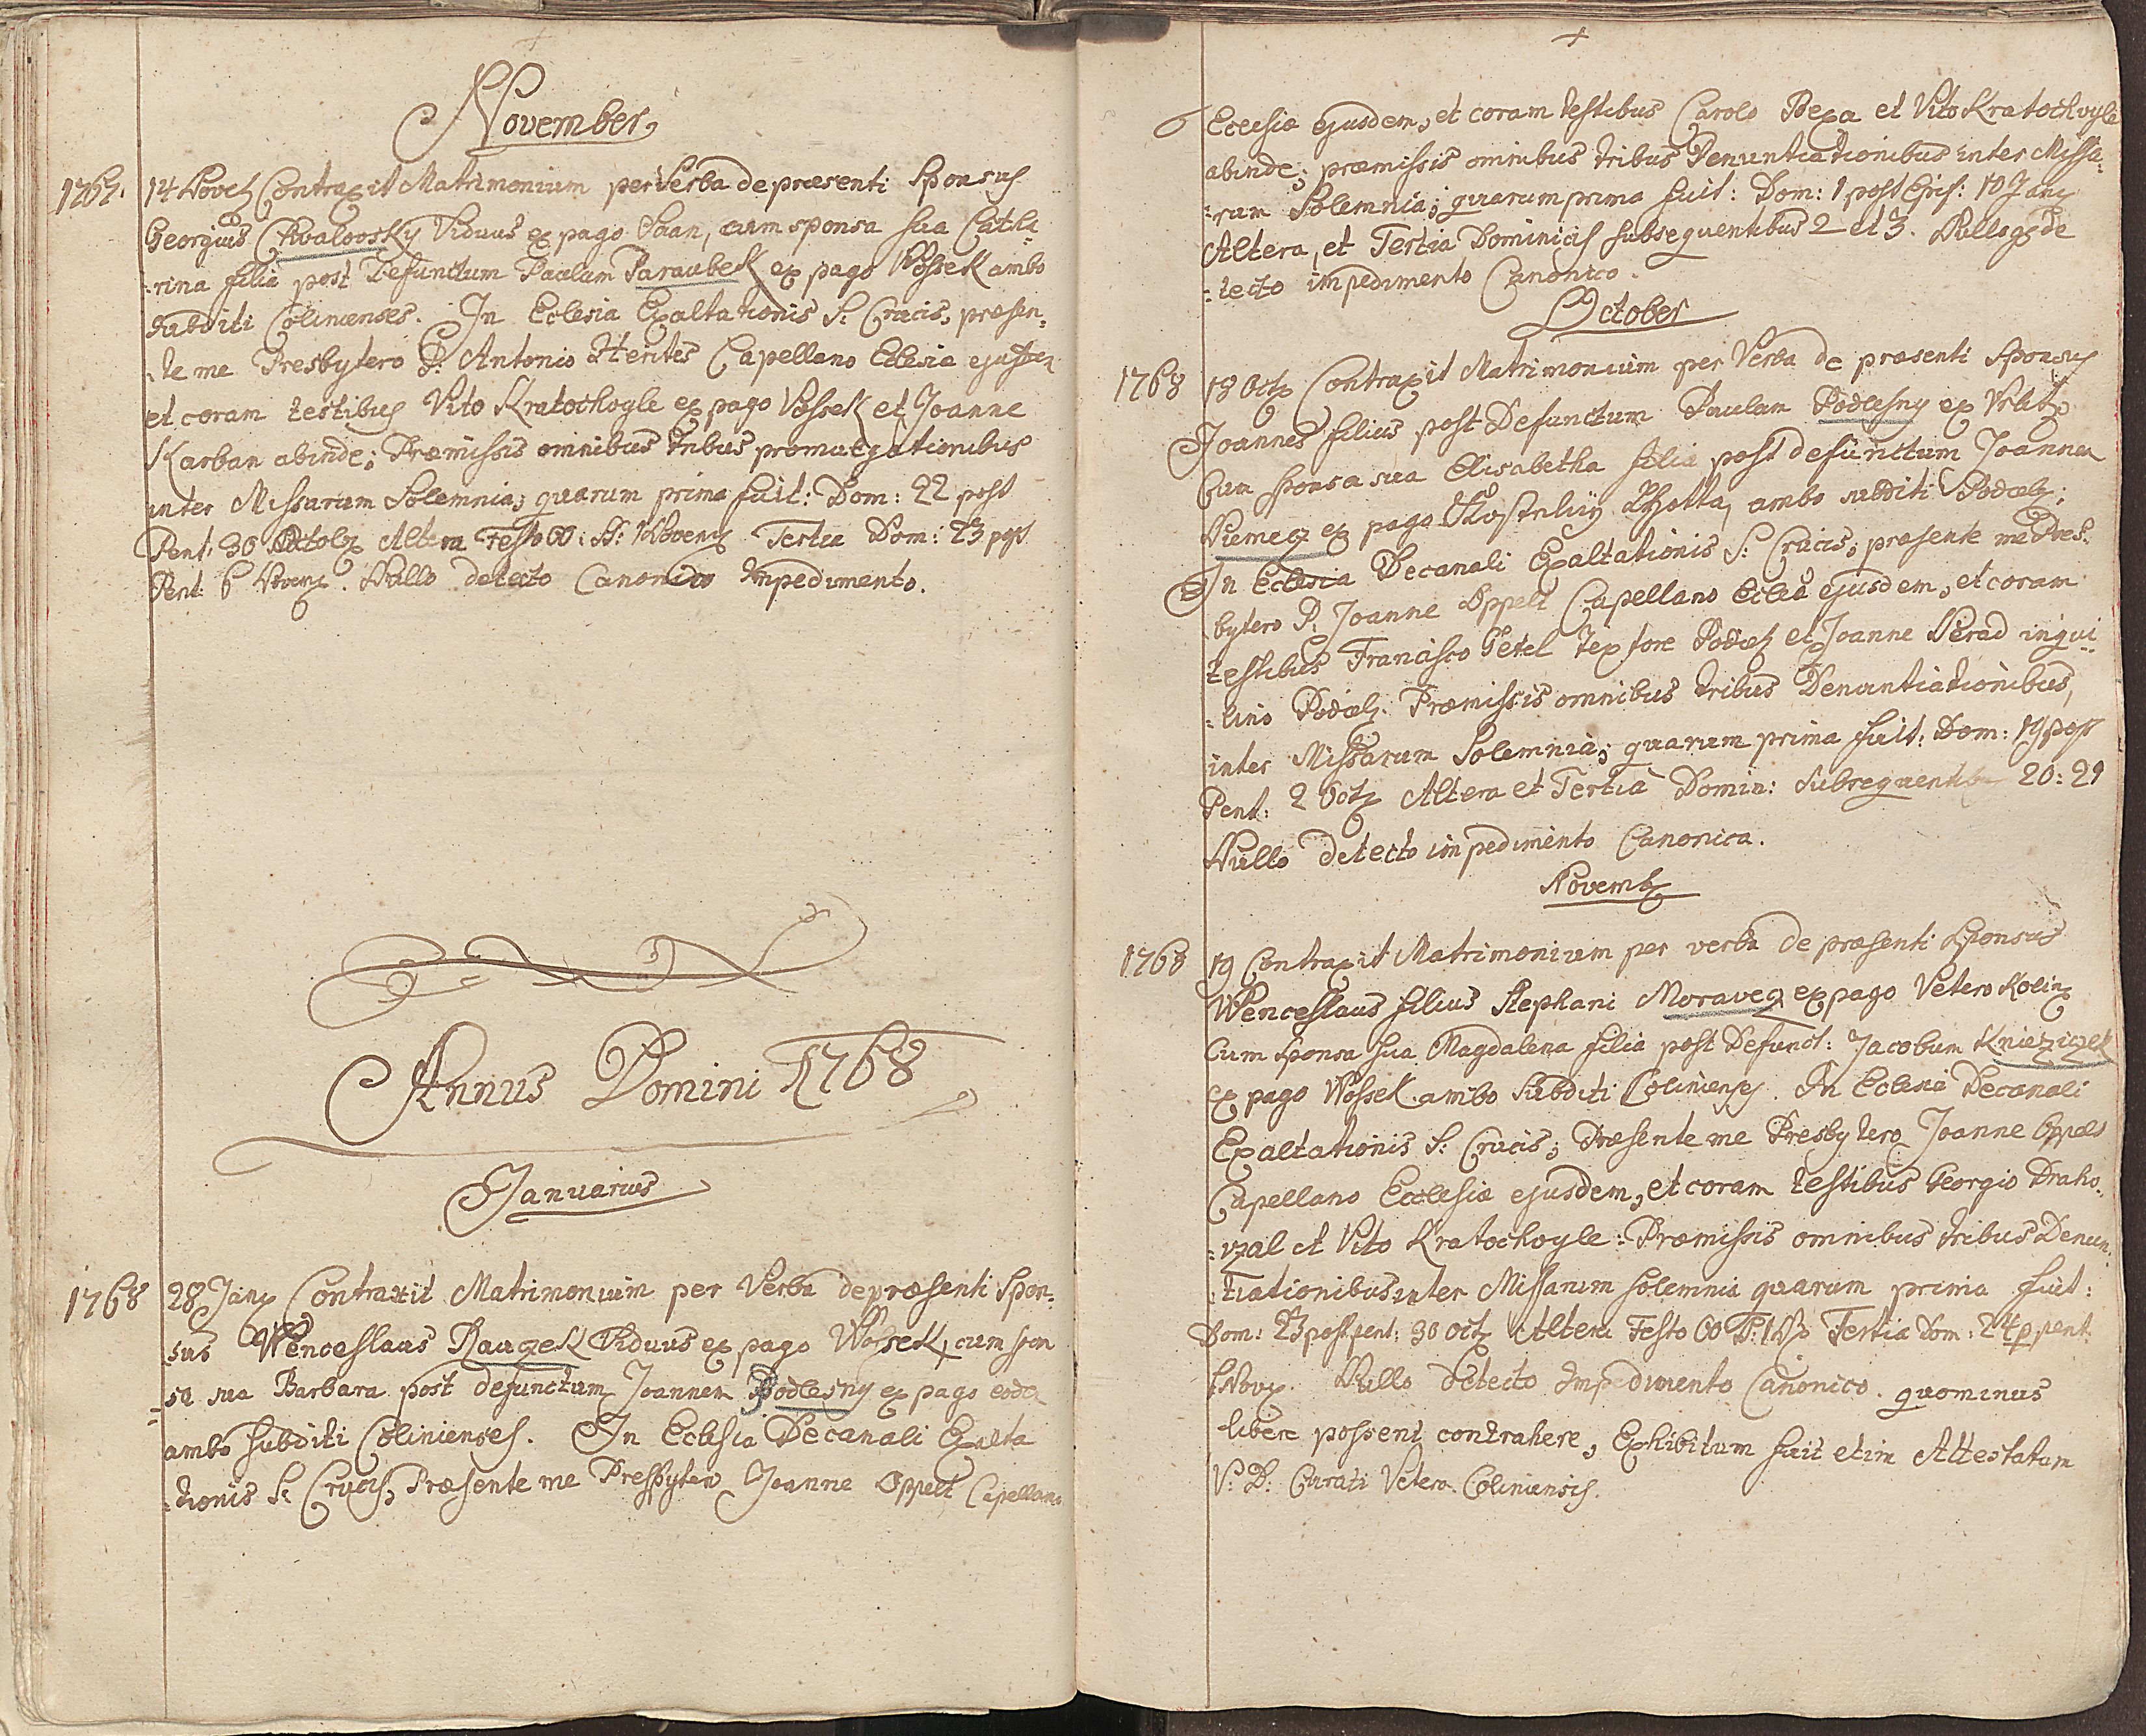 November
1767. 14 Novem Contraxit Matrimonium per Verba de præsenti Sponsus
Georgius Chwalovsky Viduus ex pago Saan, cum sponsa sua Catha-
-rina filia post Defunctum Paulum Paraubek ex pago Wossek ambo
subditi Colinienses. In Eclesia Exaltationis S: Crucis, præsen-
-te me Presbytero P. Antonio Herites Capellano Eclesiæ ejusdem
et coram testibus Vito Kratochvyle ex pago Vossek et Joanne
Karban abinde; Præmissis omnibus tribus promulgationibus
inter Missarum Solemnia, quarum prima fuit: Dom: 22 post
Pent: 30 Altera Festo OO: SS: Tertia Dom: 23 post
Pent: 6 Nullo detecto Canonico Impedimento.
Annus Domini 1768
Januarius
1768 28 Jan Contraxit Matrimonium per Verba de præsenti Spon-
sus Wenceslaus Rauczek Viduus ex pago Wossek, cum spon
-sa sua Barbara post defunctum Joannem Podlesny ex pago eodem
ambo subditi Colinienses. In Eclesia Decanali Exalta
-tionis S: Crucis, Præsente me Presbytero Joanne Oppelt Capellano
Eclesiæ ejusdem, et coram testibus Carolo Bexa et Vito Kratochvyle
abinde; præmissis omnibus tribus Denuntiationibus inter Missa-
-rum Solemnia; quarum prima fuit: Dom: 1 post Epif: 10 Jan
Altera, et Tertia Dominicis subsequentibus 2 et 3. Nulloq; de
-tecto impedimento Canonico.
October
1768 18 Oct Contraxit Matrimonium per Verba de præsenti Sponsus
Joannes filius post Defunctum Paulum Podlesny ex
Cum sponsa sua Elisabetha filia post defunctum Joannem
Niemecz ex pago Lhotta, ambo subditi
In Eclesia Decanali Exaltationis S: Crucis; præsente me Pres-
bytero P. Joanne Oppelt Capellano ejusdem, et coram
testibus Francisco Getel Textore et Joanne Nerad inqui-
-lino Præmissis omnibus tribus Denuntiationibus,
inter Missarum Solemnia; quarum prima fuit: Dom: 19 post
Pent: 2 Oct Altera et Tertia Domin: Subsequentibus 20: 21
Nullo detecto impedimento Canonico.
Novemb
1768 19 Contraxit Matrimonium per verba de præsenti Sponsus
Wenceslaus filius Stephani Moravecz ex pago Vetero Kolin
Cum sponsa sua Magdalena filia post Defunct: Jacobum Knieziczek
ex pago Wossek ambo Subditi Colinienses. In Eclesia Decanali
Exaltationis S: Crucis; Præsente me Presbytero Joanne Oppelt
Capellano Ecclesiæ ejusdem, et coram testibus Georgio Draho-
-vzal et Vito Kratochvyle: Præmissis omnibus tribus Denun-
-tiationibus inter Missarum solemnia quarum prima fuit:
Dom: 23 post pent: 30 oct Altera Festo OO Tertia Dom: 24 p pent:
Nov Nullo detecto Impedimento Canonico. quominus
libere possent contrahere, Exhibitum fuit etim Attestatum
V: D: Curati Vetero Coliniensis.